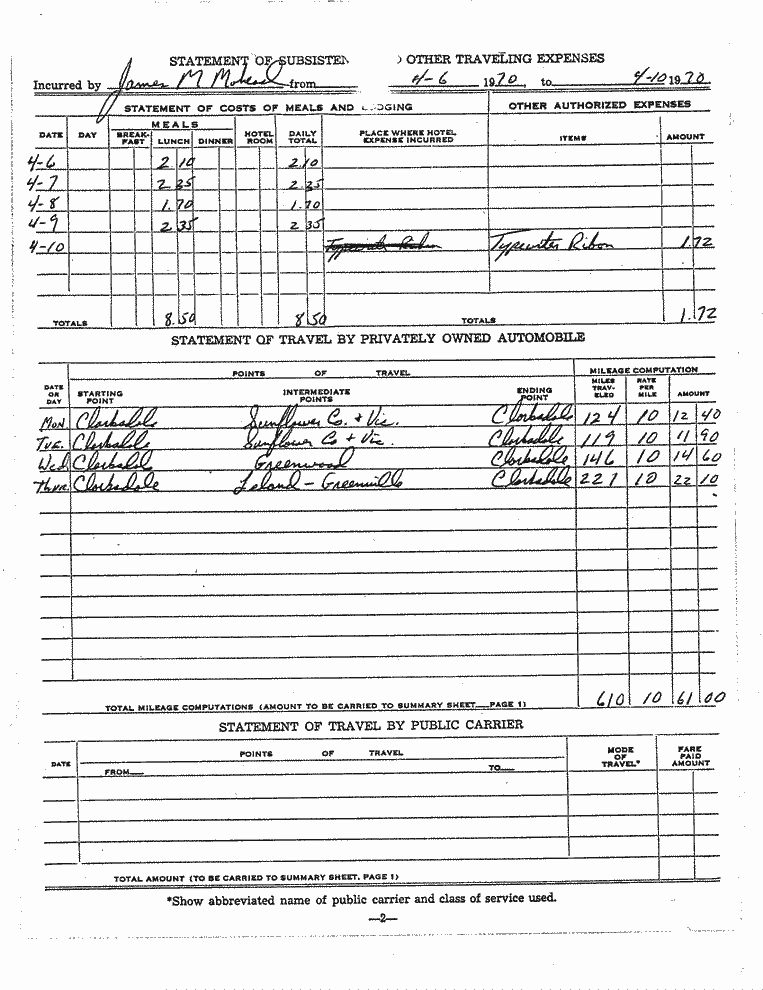 STATEMENT OF SUBSISTEN ) OTHER TRAVELING EXPENSES
Incurred by James M Mohead from 4-6 1970, to 4-10 1970
STATEMENT OF COSTS OF MEALS AND L DGING OTHER AUTHORIZED EXPENSES
MEALS
DATE DAY BREAK-FAST LUNCH DINNER HOTEL ROOM DAILY TOTAL PLACE WHERE HOTEL EXPENSE INCURRED ITEMS AMOUNT
4-6 2 10 2.10
4-7 2 25 2.25
4-8 1.70 1.70
4-9 2 35 2 35
4-10 Typewriter Ribon Typewriter Ribon 1.72
TOTALS 8.50 8.50 TOTALS 1.72
STATEMENT OF TRAVEL BY PRIVATELY OWNED AUTOMOBILE
POINTS OF TRAVEL MILEAGE COMPUTATION
DATE OR DAY STARTING POINT INTERMEDIATE POINTS ENDING POINT MILES TRAV-ELED RATE PER MILE AMOUNT
Mon. Clarksdale Sunflower Co. + Vic. Clarksdale 124 10 12 40
Tue. Clarksdale Sunflower Co + Vic. Clarksdale 119 10 11 90
Wed Clarksdale Greenwood Clarksdale 146 10 14 60
Thur. Clarksdale Leland - Greenville Clarksdale 221 10 22 10
TOTAL MILEAGE COMPUTATIONS (AMOUNT TO BE CARRIED TO SUMMARY SHEET PAGE 1) 610 10 61 00
STATEMENT OF TRAVEL BY PUBLIC CARRIER
DATE POINTS OF TRAVEL MODE OF TRAVEL* FARE PAID AMOUNT
FROM TO
TOTAL AMOUNT (TO BE CARRIED TO SUMMARY SHEET, PAGE 1)
*Show abbreviated name of public carrier and class of service used.
—2—